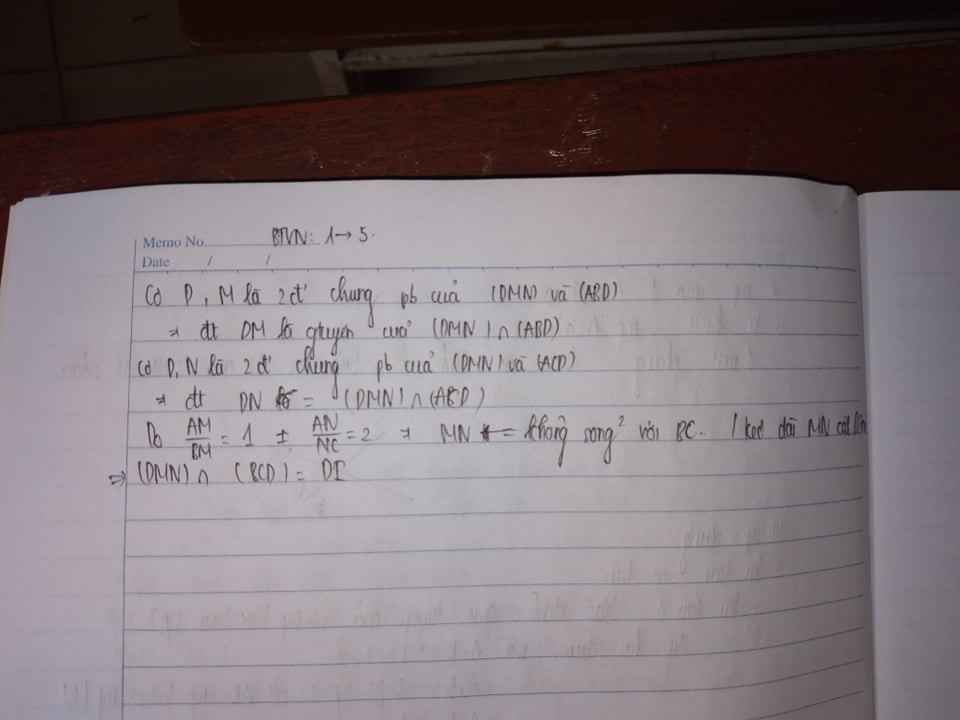 Memo No. BTVN: 1 → 5.
Date / /
Có D, M là 2 đ' chung pb của (DMN) và (ABD)
→ đt DM là gtuyến của (DMN) ∩ (ABD)
Có D, N là 2 đ' chung pb của (DMN) và (ACD)
→ đt DN = (DMN) ∩ (ACD)
Do AM/BM = 1 ± AN/NC = 2 → MN không song² với BC. / kéo dài MN cắt
⇒ (DMN) ∩ (BCD) = DI